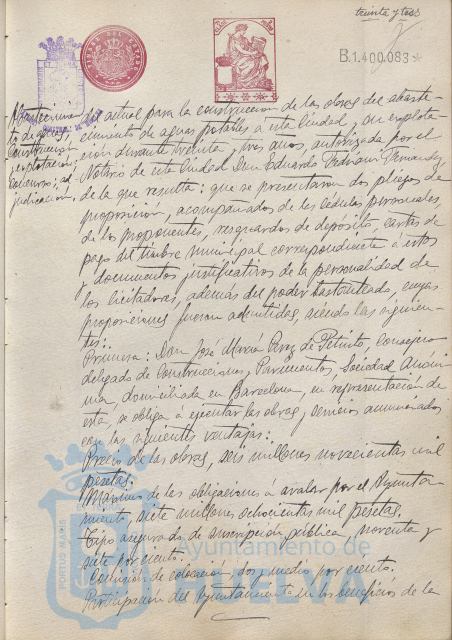 treinta y tres
B.1.400.083*
Abastecimien
to de aguas,
Construcción
y explotación,
Concurso, ad
judicación,
te actual para la construccion de las obras del abaste-
cimiento de aguas potables a esta Ciudad, y su explota-
ción durante treinta y tres anos, autorizada por el
Notario de esta Ciudad Don Eduardo Fernandez
de la que resulta: que se presentaron dos pliegos de
proposicion, acompañados de las cedulas personales
de los proponentes, resguardos de depósito, cartas de
pago del timbre municipal correspondiente á estos
y documentos justificativos de la personalidad de
los licitadores, además del poder bastanteado, cuyas
proposiciones fueron admitidas, siendo las siguien-
tes:
Primera: Don José María Perez de Petinto, Consejero
delegado de Construcciones y Pavimentos, Sociedad Anóni-
ma, domiciliada en Barcelona, en representación de
esta, se obliga á ejecutar las obras y servicios anunciados
con las siguientes ventajas:
Precio de las obras, seis millones novecientas mil
pesetas.
Máximo de las obligaciones á avalar por el Ayunta-
miento, siete millones ochocientas mil pesetas.
Tipo asegurado de suscripción pública, noventa y
siete por ciento.
Comisión de colocación, dos y medio por ciento.
Participación del Ayuntamiento en los beneficios de la
Ayuntamiento de
HUELVA
PORTUS MARIS